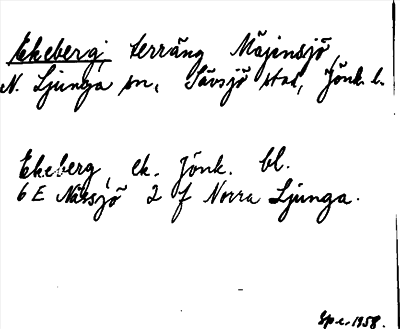 Ekeberg, terräng Mäjensjö,
N. Ljunga sn, Sävsjö stad, Jönk. l.
Ekeberg, ek. Jönk. bl.
6 E Nässjö 2 f Norra Ljunga.
Sp.c. 1958.